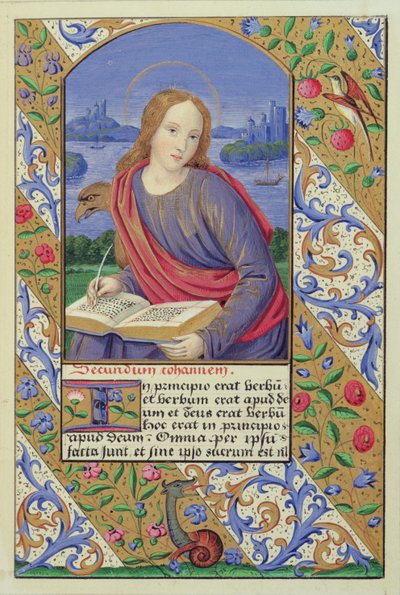 Secundum iohannem.
In principio erat verbū:
et verbum erat apud de
um et deus erat verbū
hoc erat in principio
apud deum: Omnia per ipsu
facta sunt et sine ipso factum est ni